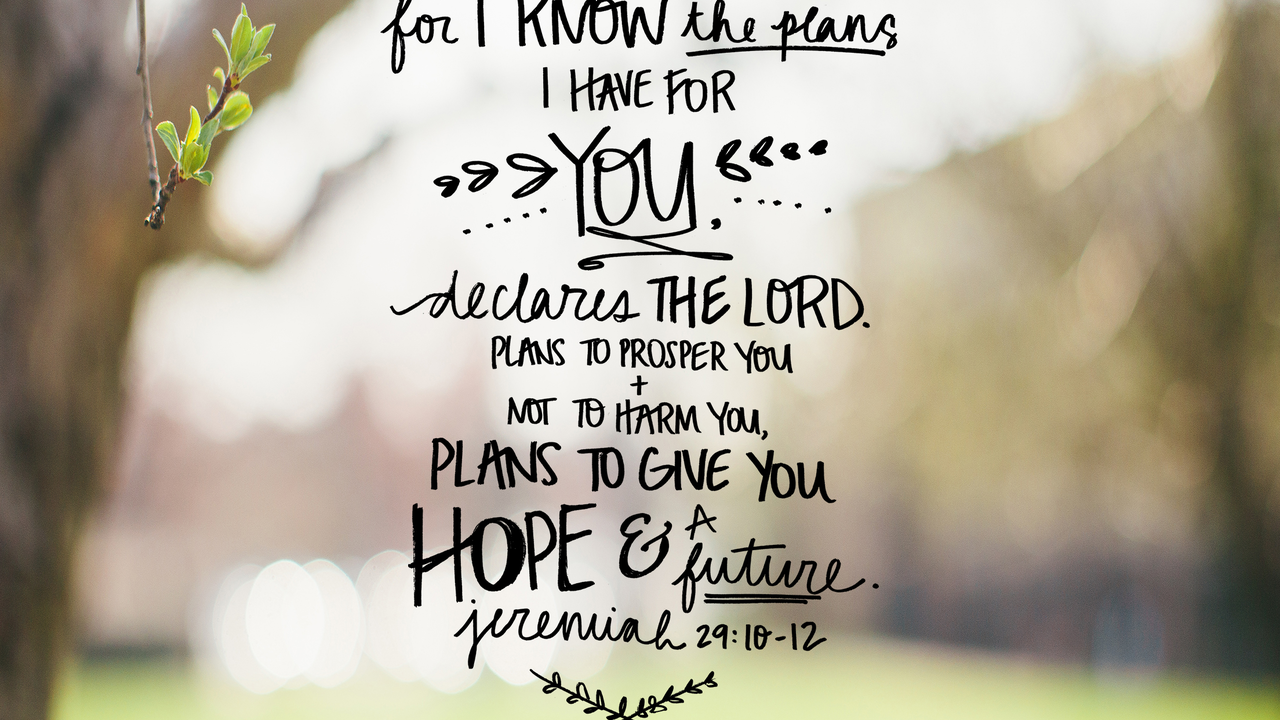 for I KNOW the plans
I HAVE FOR
YOU.
declares THE LORD.
PLANS TO PROSPER YOU
+
NOT TO HARM YOU,
PLANS TO GIVE YOU
HOPE & A
future.
jeremiah 29:10-12